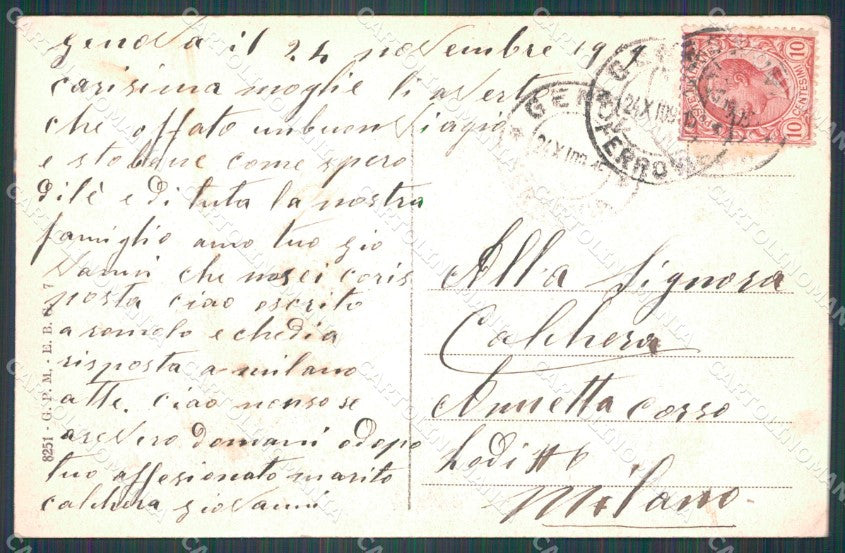 Genova il 24 novembre 1909
carisima moglie ti averto
che o fato un buon viagio
e sto bene come spero
di lè e di tuta la nostra
famiglio amo tuo gio
vanni che
posta ciao o scrito
a romolo e che dia
risposta a milano
atte. ciao non so se
a rivero domani o dopo
tuo affesionato marito
calchera giovanni
8251 - G. P. M. - E. B. 7
GENOVA
FERROVIA
24 XI 09
GEN
24 XI 09
POSTE ITALIANE
CENTESIMI
10 10
Alla Signora
Calchera
Annetta corso
Lodi # 6
Milano
CARTOLINOMANIA